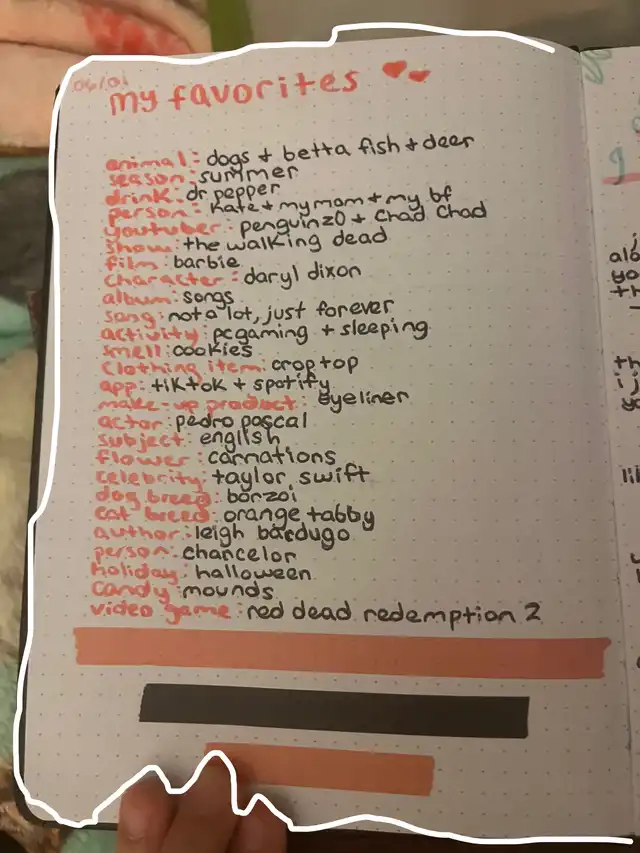 06/01
my favorites
animal: dogs + betta fish + deer
season: summer
drink: dr pepper
person: kate + my mom + my bf
youtuber: penguinz0 + chad chad
show: the walking dead
film: barbie
character: daryl dixon
album: songs
song: not a lot, just forever
activity: pc gaming + sleeping
smell: cookies
clothing item: crop top
app: tiktok + spotify
make-up product: eyeliner
actor: pedro pascal
subject: english
flower: carnations
celebrity: taylor swift
dog breed: borzoi
cat breed: orange tabby
author: leigh bardugo
person: chancelor
holiday: halloween
candy: mounds
video game: red dead redemption 2